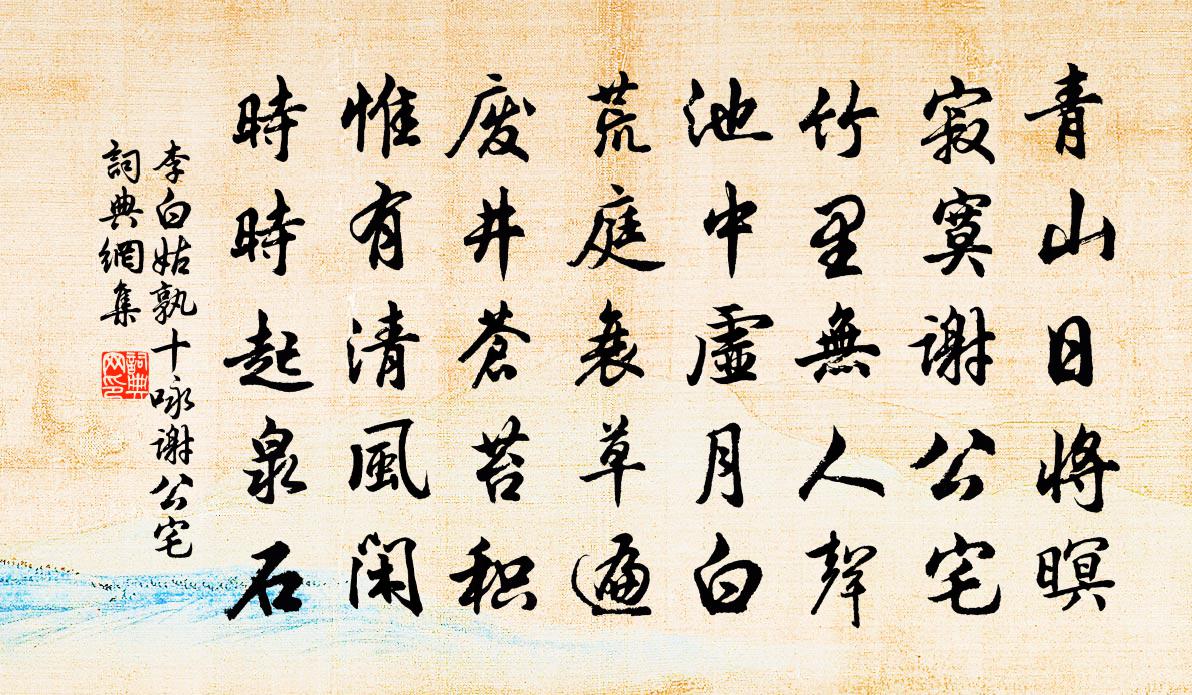 青山日將暝
寂寞謝公宅
竹里無人聲
池中虛月白
荒庭衰草遍
废井苍苔积
惟有清風閑
時時起泉石
李白姑孰十咏謝公宅
詞典網集
詞典
网印